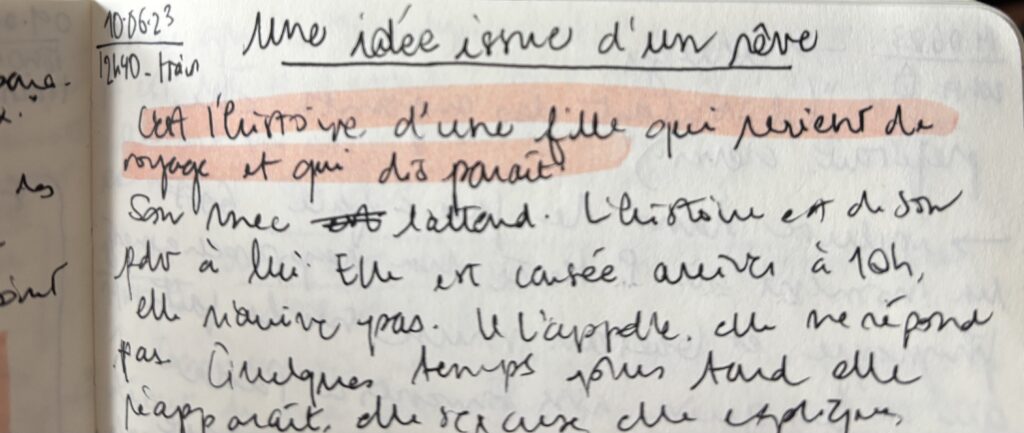 10.06.23
12h40 - train
Une idée issue d'un rêve
C'est l'histoire d'une fille qui revient de
voyage et qui disparaît.
Son mec est l'attend. L'histoire est de son
pdv à lui. Elle est censée arriver à 10h,
elle n'arrive pas. Il l'appelle. elle ne répond
pas. Quelques temps plus tard elle
réapparaît, elle s'excuse elle explique,
des